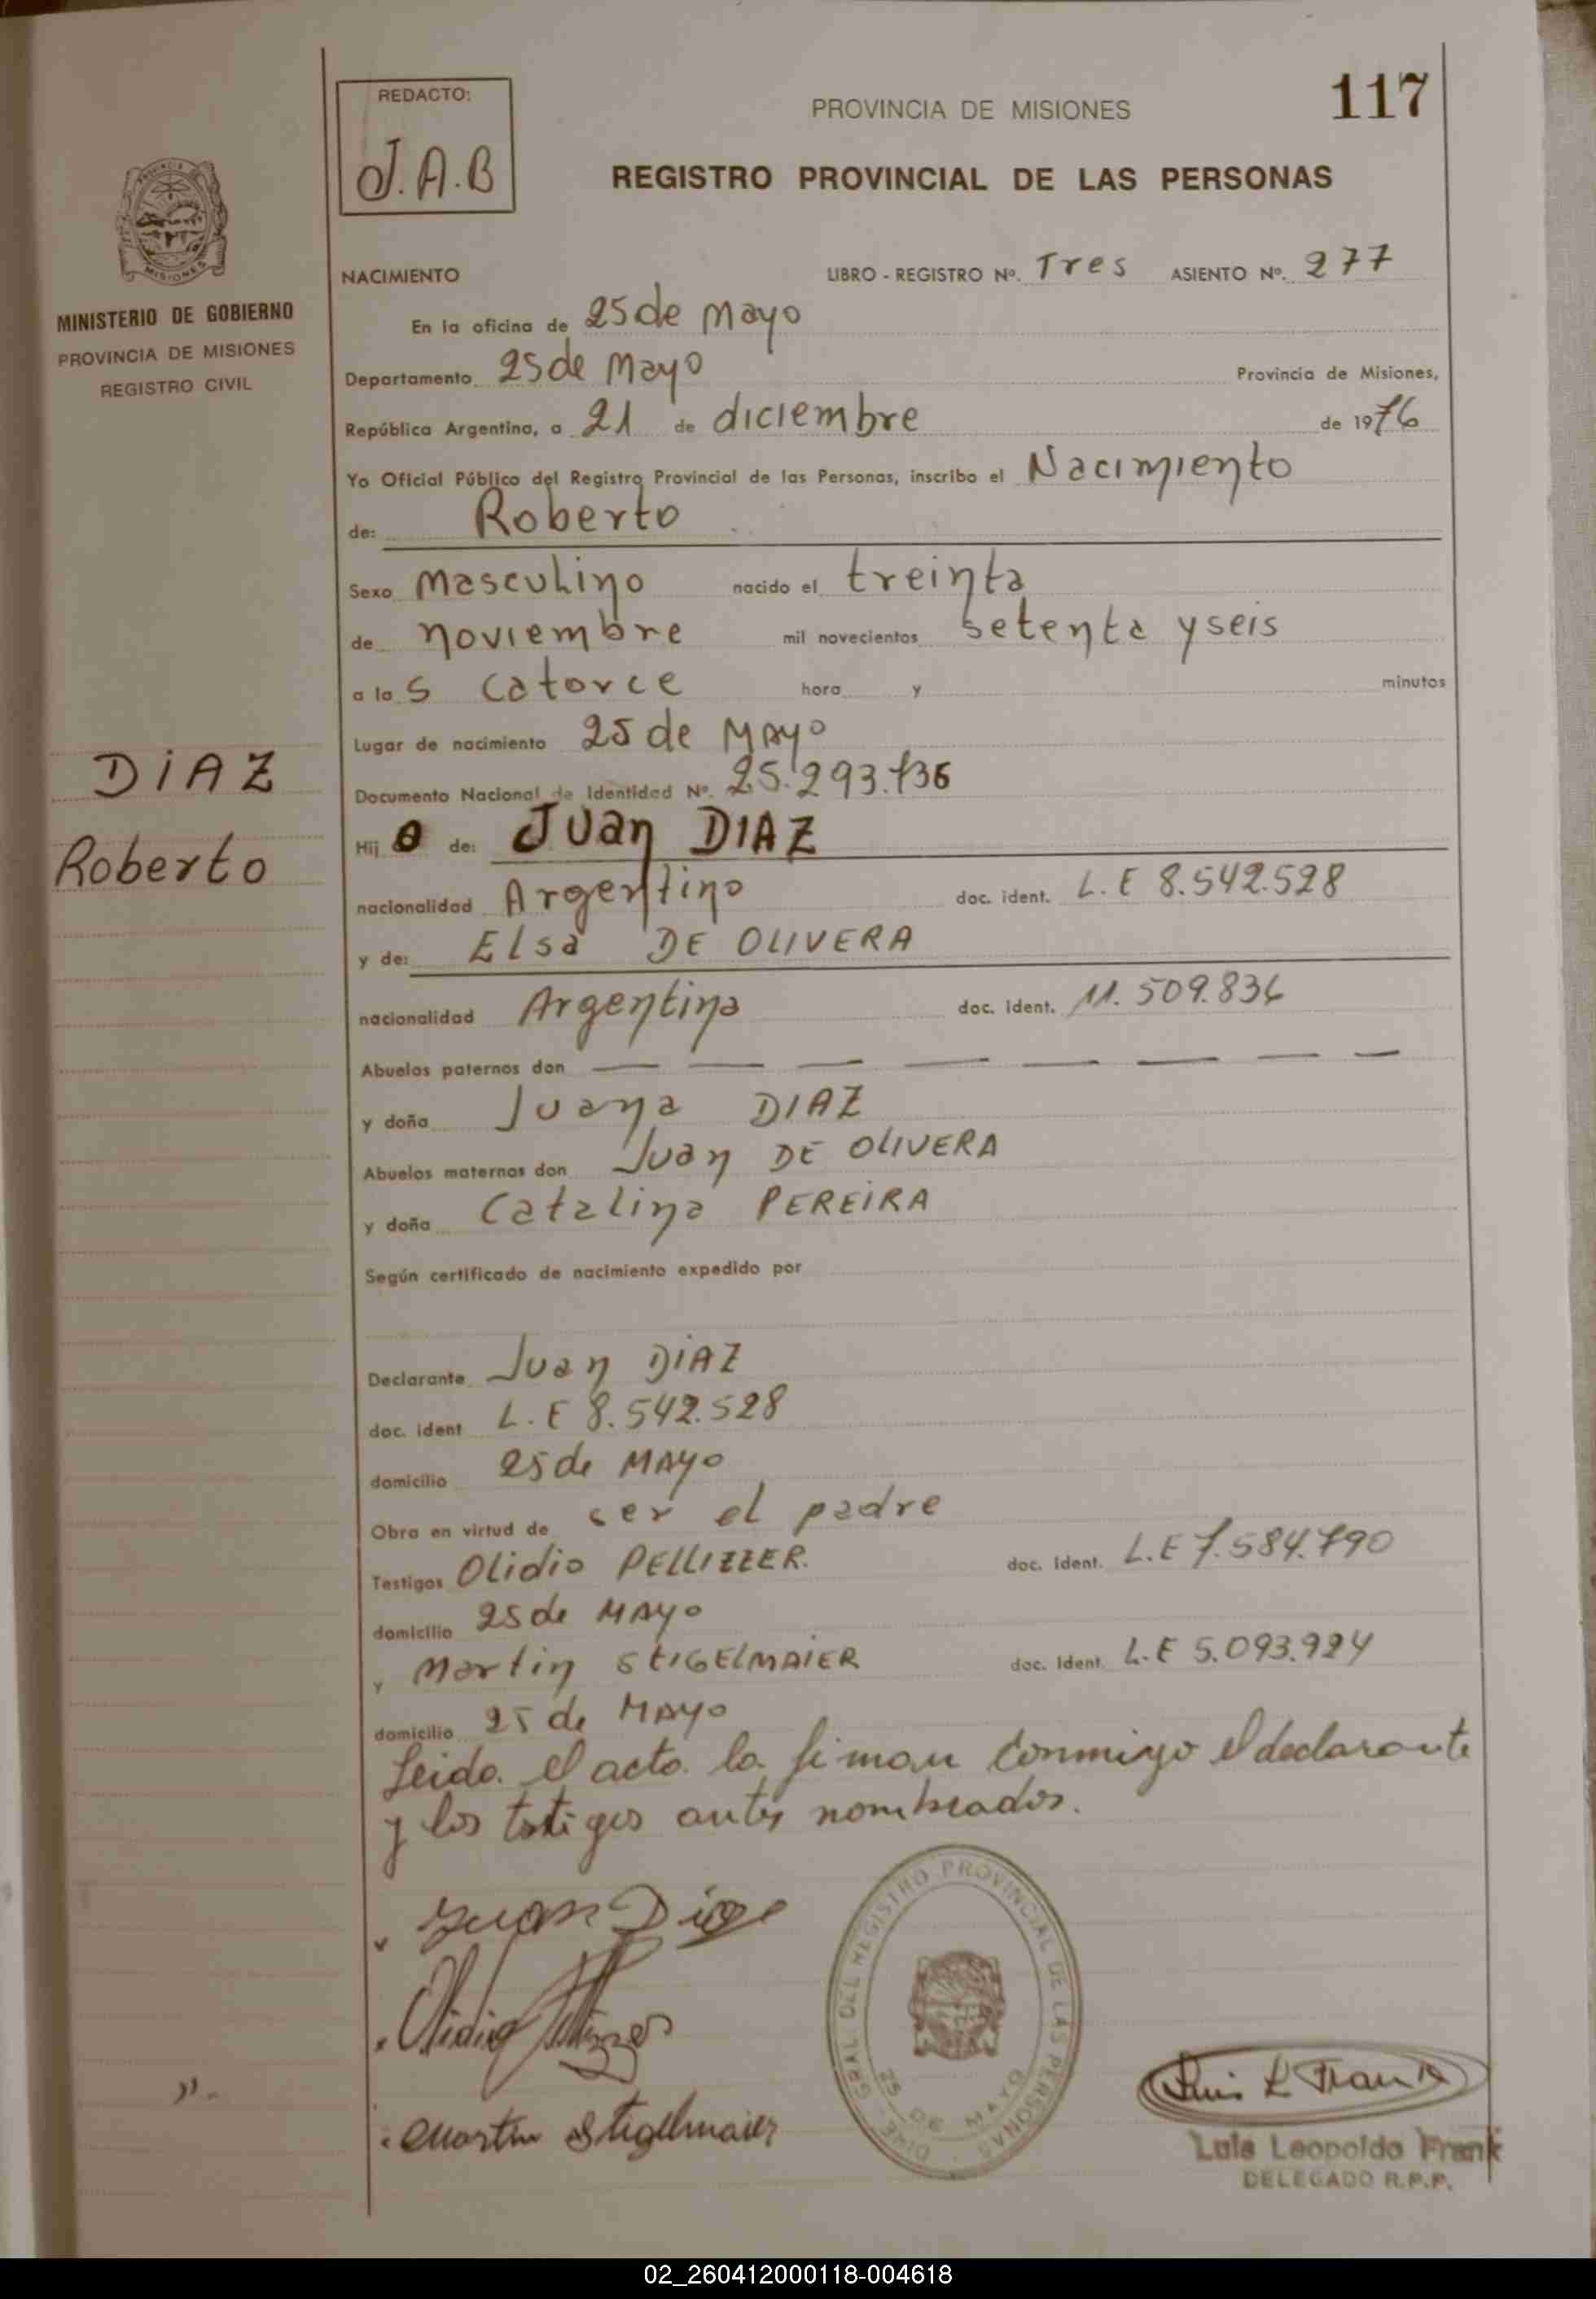 REDACTO:
J.A.B
PROVINCIA DE MISIONES
117
REGISTRO PROVINCIAL DE LAS PERSONAS
MISIONES
MINISTERIO DE GOBIERNO
PROVINCIA DE MISIONES
REGISTRO CIVIL
NACIMIENTO LIBRO - REGISTRO Nº. Tres ASIENTO Nº. 277
En la oficina de 25 de Mayo
Departamento 25 de Mayo Provincia de Misiones,
República Argentina, a 21 de diciembre de 1976
Yo Oficial Público del Registro Provincial de las Personas, inscribo el Nacimiento
de: Roberto
Sexo masculino nacido el treinta
de noviembre mil novecientos setenta y seis
a las catorce hora y minutos
Lugar de nacimiento 25 de MAyo
DIAZ
Roberto
Documento Nacional de Identidad Nº. 25.293.736
Hijo de: Juan DIAZ
nacionalidad Argentino doc. ident. L.E 8.542.528
y de: Elsa DE OLIVERA
nacionalidad Argentina doc. ident. 11.509.836
Abuelos paternos don — — — — — — — —
y doña Juana DIAZ
Abuelos maternos don Juan DE OLIVERA
y doña Catalina PEREIRA
Según certificado de nacimiento expedido por
Declarante Juan DIAZ
doc. ident L.E 8.542.528
domicilio 25 de MAyo
Obra en virtud de ser el padre
Testigos Olidio PELLIZZER. doc. ident. L.E 7.584.790
domicilio 25 de MAyo
y Martin STIGELMAIER doc. ident. L.E 5.093.924
domicilio 25 de MAyo
Leida el acta la firman conmigo el declarante
y los testigos antes nombrados.
Juan Diaz
Olidio Pellizzer
Martin Stigelmaier
DIRE. GRAL. DEL REGISTRO PROVINCIAL DE LAS PERSONAS
25 DE MAYO
Luis L Frank
Luis Leopoldo Frank
DELEGADO R.P.P.
02_260412000118-004618